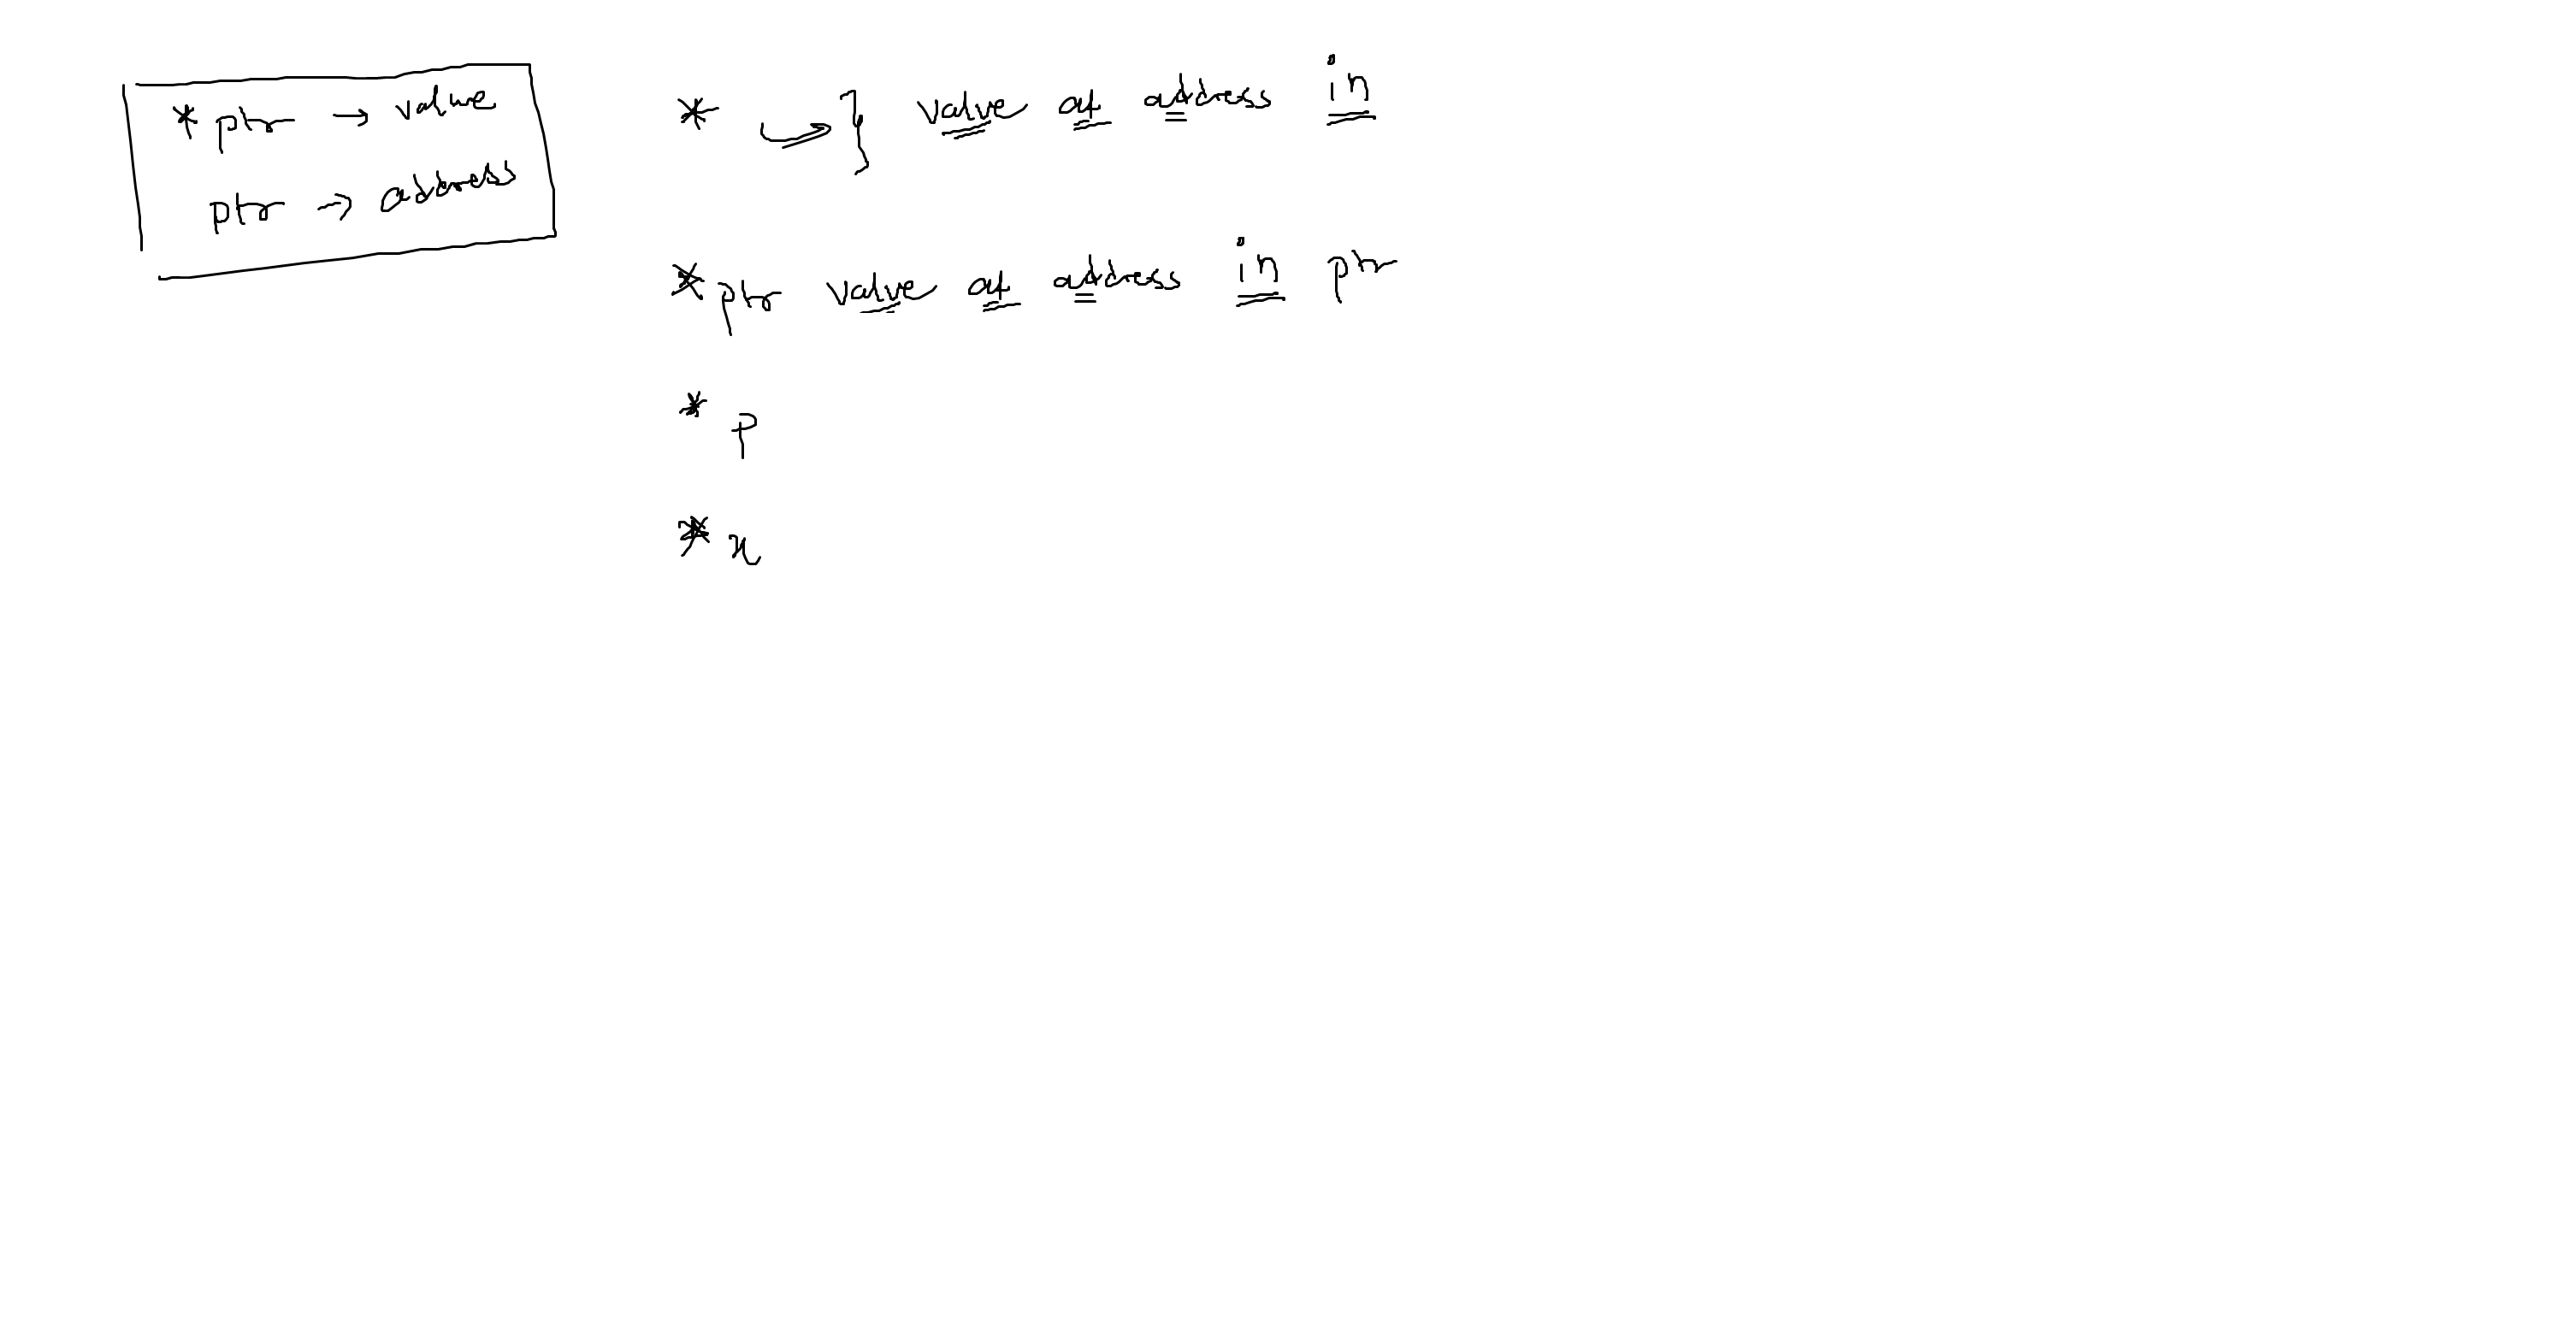 * ptr → value
ptr → address
* } value at address in
*ptr value at address in ptr
* p
* x